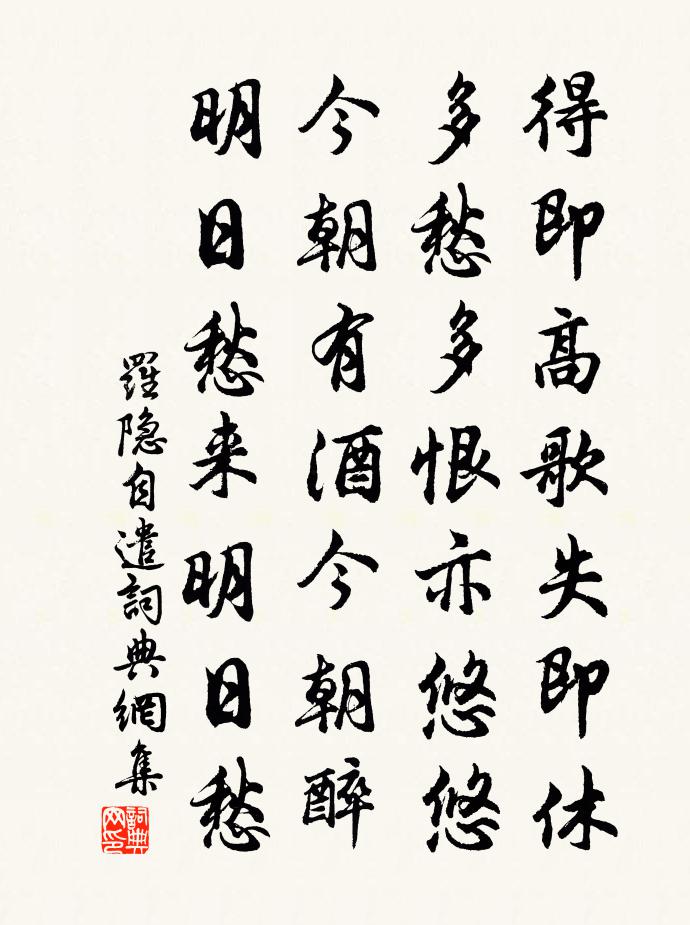 得即高歌失即休
多愁多恨亦悠悠
今朝有酒今朝醉
明日愁来明日愁
羅隐自遣詞典網集
詞典网印